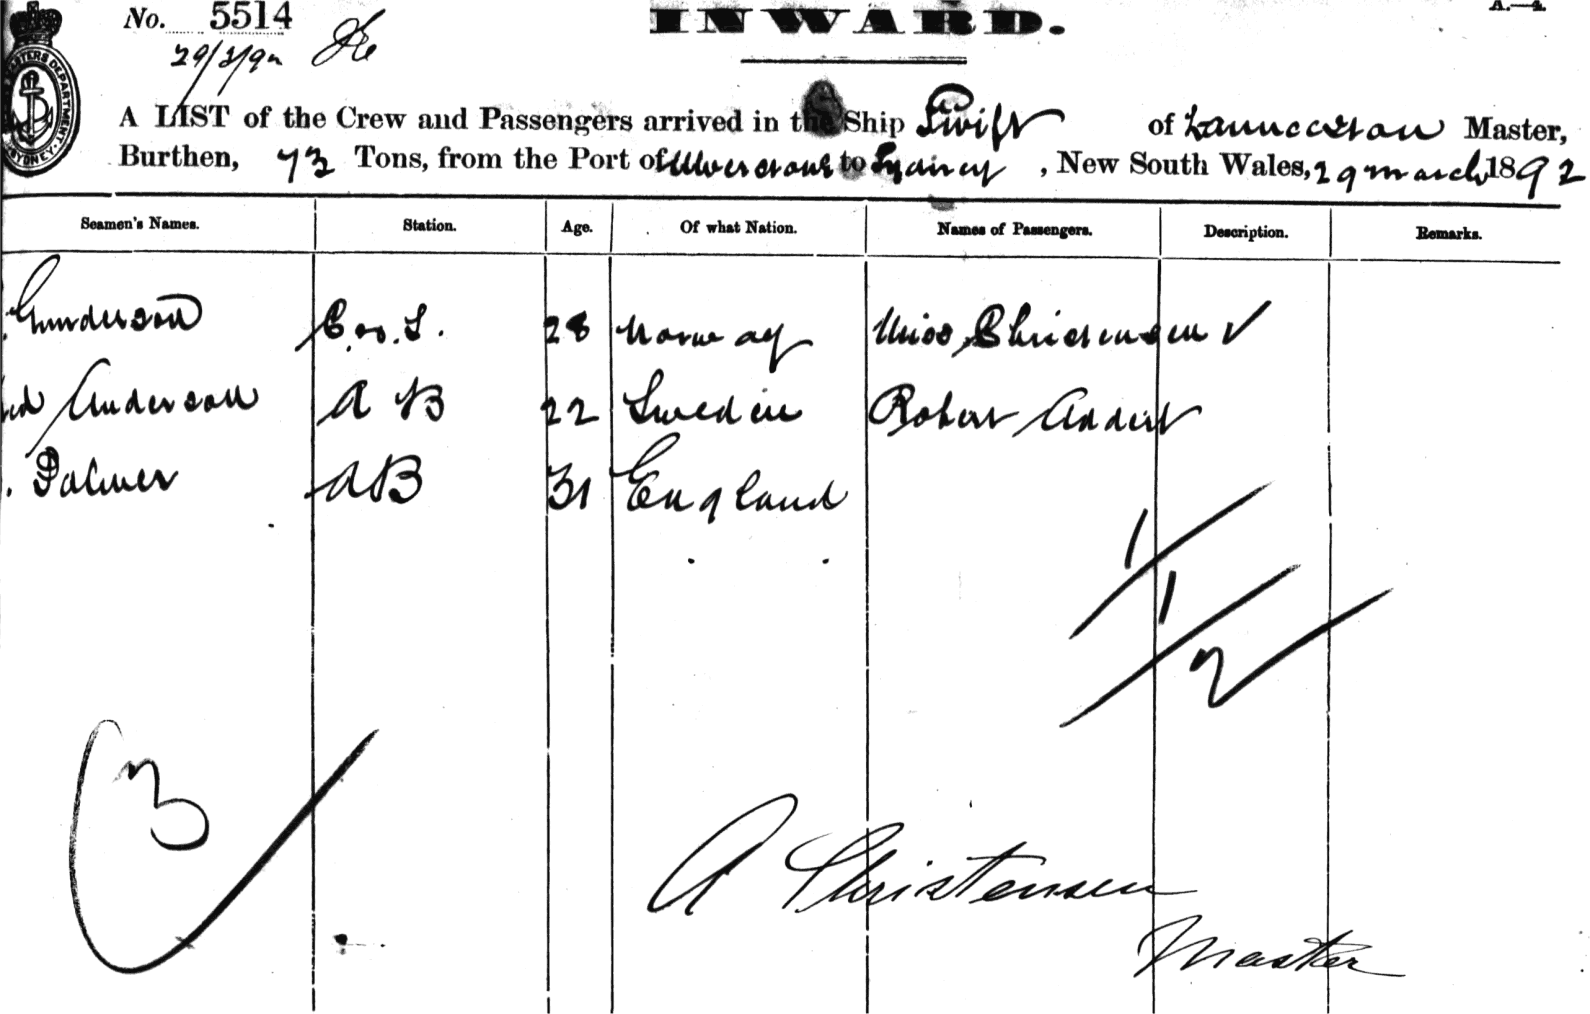 No. 5514
INWARD.
A.—4.
29/3/92
A LIST of the Crew and Passengers arrived in the Ship Swift of Launceston Master,
Burthen, 73 Tons, from the Port of Ulverstone to Sydney, New South Wales, 29 March 1892
Seamen's Names. Station. Age. Of what Nation. Names of Passengers. Description. Remarks.
Gunderson 28 Norway Miss Christensen ✓
Anderson A B 22 Sweden Robert
Palmer A B 31 England
1
1
2
3
A Christensen
Master